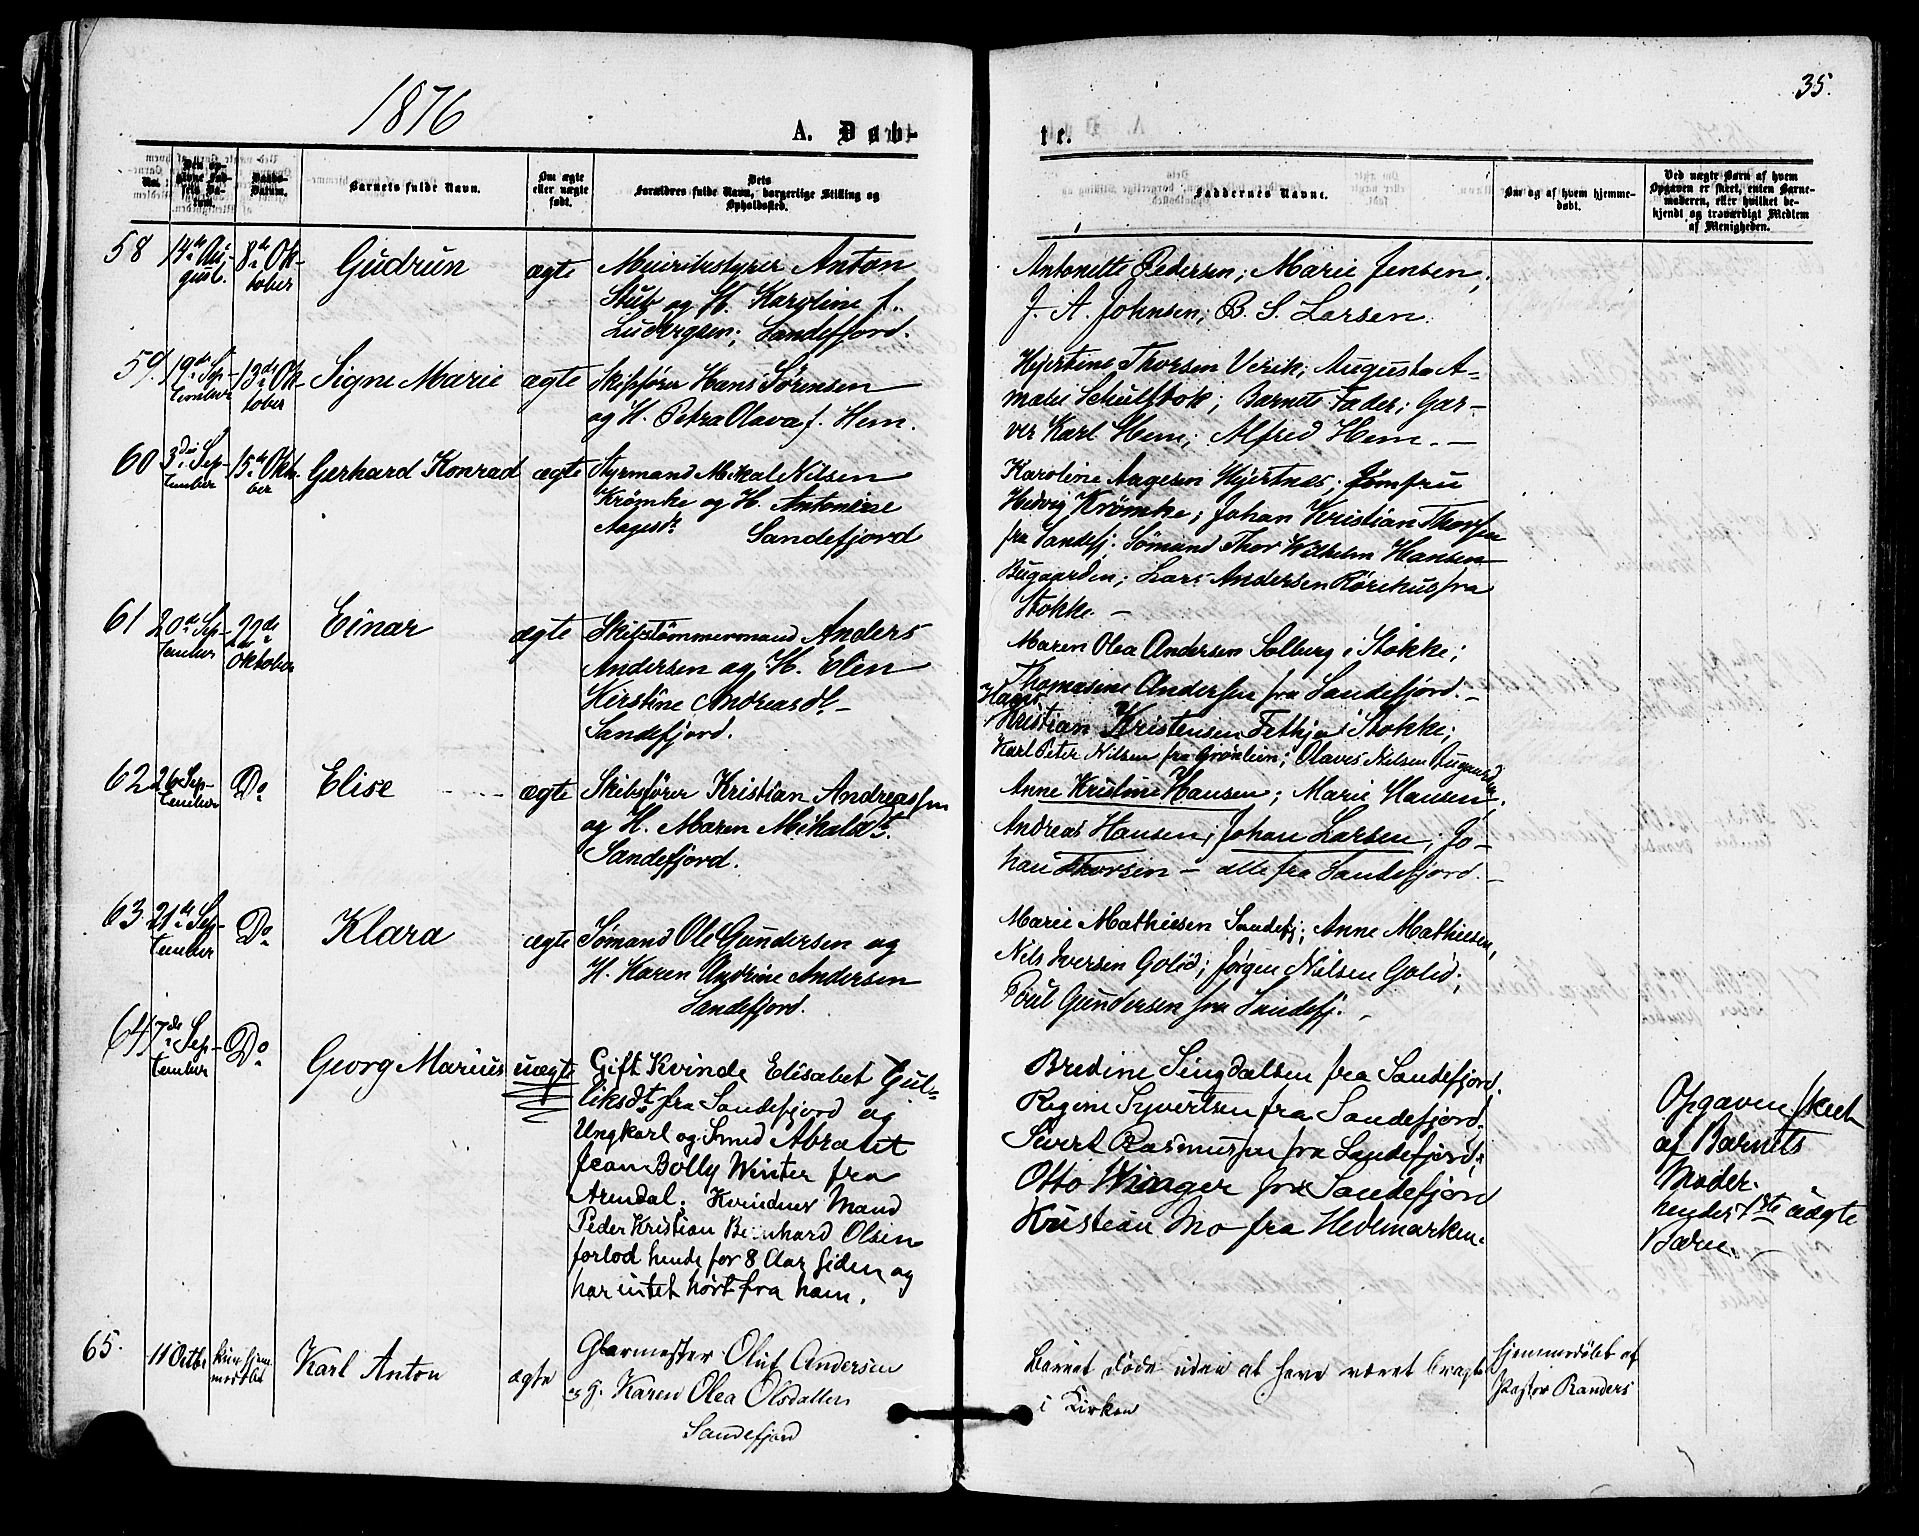 1876
35.
A. Døb-
te.
No.
Den op-
givne Fød-
sels Da-
tum.
Daabs-
Datum.
Barnets fulde Navn.
Om ægte
eller uægte
født.
Dets
Forældres fulde Navn, borgerlige Stilling og
Opholdssted.
Faddernes Navne.
Om og af hvem hjemme-
døbt.
Ved uægte Børn af hvem
Opgaven er skeet, enten Barne-
moderen, eller hvilket be-
kjendt og troværdigt Medlem
af Menigheden.
58
14de Au-
gust.
8de Ok-
tober
Gudrun
ægte
Anton
Stub og H. Karoline f.
Ludvigsen; Sandefjord.
Antonette Pedersen; Marie Jensen;
J. A. Johnsen; B. S. Larsen.
59.
19de Sep-
tember
13de Ok-
tober
Signe Marie
ægte
Skipsfører Hans Sørensen
og H. Petra Olava f. Hem.
Hjertine Thorsen Verik; Augusta A-
malie Schulstok; Barnets Fader; Gar-
ver Karl Hem; Alfred Hem. -
60
3die Sep-
tember
15de Okto-
ber
Gerhard Konrad
ægte
Styrmand Mikal Nilsen
Krømke og H. Antonisse
Aagesdt.
Sandefjord
Karoline Aagesen Hjertnæs; Jomfru
Hedvig Krømke; Johan Kristian Thorsen
fra Sandefj. Sømand Thor Wilhelm Hansen
Bugaarden; Lars Andersen Rørekus fra
Stokke. -
61
20de Sep-
tember
22de
Oktober
Einar
ægte
Skibstømmermand Anders
Andersen og H. Elen
Kirstine Andreasdt. -
Sandefjord.
Maren Olea Andersen Solberg i Stokke;
Thomasine Andersen fra Sandefjord. -
Hans
Kristian Kristensen Fethja i Stokke;
Karl Peter Nilsen fra Grønlien; Olaves Nilsen Bugaarden
62
26 Sep-
tember
Do
Elise
ægte
Skibsfører Kristian Andreassen
og H. Maren Mikalsdt.
Sandefjord.
Anne Kristine Hansen; Marie Hansen;
Andreas Hansen; Johan Larsen; Jo-
han Thorsen - alle fra Sandefjord. -
63
21de Sep-
tember
Do
Klara
ægte
Sømand Ole Gundersen og
H. Karen Andrine Andersen
Sandefjord.
Marie Mathiesen Sandefj; Anne Mathiesen,
Nils Iversen Golid; Jørgen Nilsen Golid;
Poul Gundersen fra Sandefj. -
64
17de Sep-
tember
Do
Georg Marius
uægte
Gift Kvinde Elisabet Gul-
liksdt. fra Sandefjord og
Ungkarl og Smed
Jean Bolly Winter fra
Arendal. Kvindens Mand
Peder Kristian Bernhard Olsen
forlod hende for 8 Aar siden og
har intet hørt fra ham.
Bredine Singdalsen fra Sandefjord.
Regine Syvertsen fra Sandefjord.
Sivert Rasmussen fra Sandefjord;
Otto Winger fra Sandefjord
Kristian Mo fra Hedemarken.
Opgaven skeet
af Barnets
Moder.
hendes 1ste uægte
Barn.
65.
11 Octbr
kun hjem-
medøbt
Karl Anton
ægte
Glarmester Oluf Andersen
og H. Karen Olea Olsdatter
Sandefjord
Barnet døde uden at have været bragt
i Kirken
hjemmedøbt af
Pastor Randers